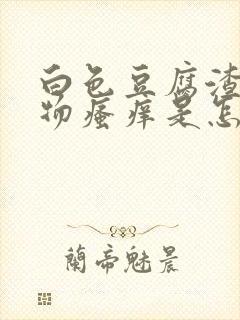 白色豆腐渣
物瘙痒是怎
蘭帝魅晨